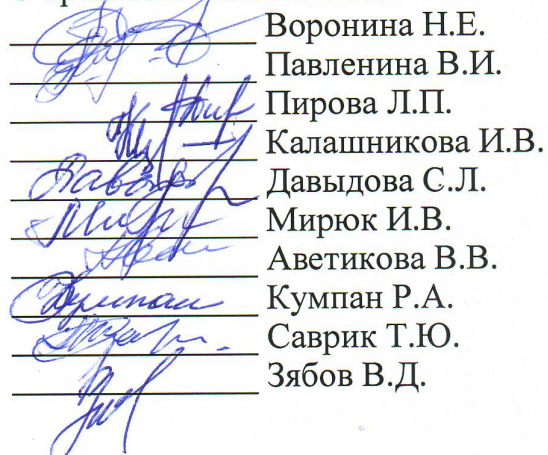 Воронина Н.Е.
Павленина В.И.
Пирова Л.П.
Калашникова И.В.
Давыдова С.Л.
Мирюк И.В.
Аветикова В.В.
Кумпан Р.А.
Саврик Т.Ю.
Зябов В.Д.